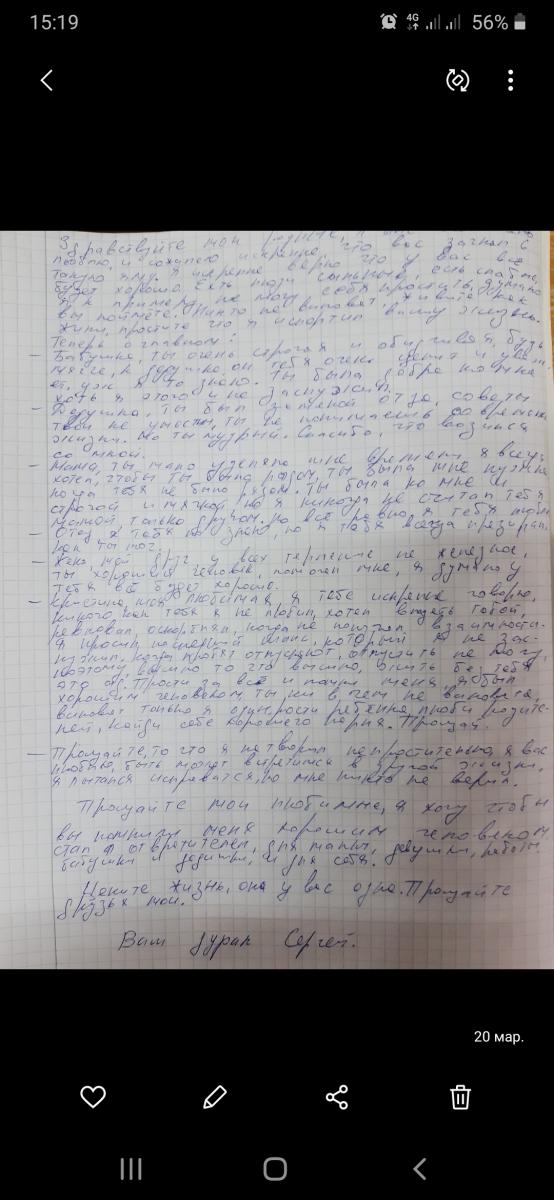 15:19
4G
56%
Здравствуйте мои родные, я
люблю, и сожалею искренне, что вас загнал в
такую яму. Я искренне верю что у вас всё
будет хорошо. Есть люди сильные, есть слабые,
я к примеру не могу себя простить, думаю
вы поймёте. Никто не виноват, живите как
жили, простите что я испортил вашу жизнь.
Теперь о главном:
– Бабушка, ты очень строгая и обидчивая, будь
мягче, к дедушке, он тебя очень ценит и уваж
ет, уж я то знаю. Ты была добра ко мне
хоть я этого и не заслужил.
– Дедушка, ты был заменой отца, советы
твои не уместны, ты не понимаешь со временем
жизни. Но ты мудрый. Спасибо, что возился
со мной.
– Мама, ты мало уделяла мне времени, я всегда
хотел, чтобы ты была рядом, ты была мне нужна
когда тебя не было рядом. Ты была ко мне и
строгой и мягкой, но я никогда не считал тебя
мамой, только другом. Но всё равно я тебя люблю
– Отец я тебя не знаю, но я тебя всегда презирал,
как ты мог.
– Женя, мой друг, у всех терпение не железное,
ты хороший человек, помогал мне, я думаю у
тебя всё будет хорошо.
– Кристина, моя любимая, я тебе искренне говорю,
никого как тебя я не любил, хотел владеть тобой,
ревновал, оскорблял, когда не получал взаимности.
Я просил последний шанс, который я не зас-
лужил, когда любят отпускают, отпустить не могу,
поэтому вышло то что вышло, жить без тебя
это ад. Прости за всё и помни меня, я был
хорошим человеком, ты ни в чем не виновата,
виноват только я один, расти ребенка, люби родите-
лей, найди себе хорошего парня. Прощай.
– Прощайте, то что я натворил непростительно, я вас
люблю, быть может встретимся в другой жизни,
я пытался исправится, но мне никто не верил.
Прощайте мои любимые, я хочу чтобы
вы помнили меня хорошим человеком
стал я отвратителен, для мамы, девушки, работы,
бабушки и дедушки, и для себя.
Цените жизнь, она у вас одна. Прощайте
друзья мои.
Ваш дурак Сергей.
20 мар.